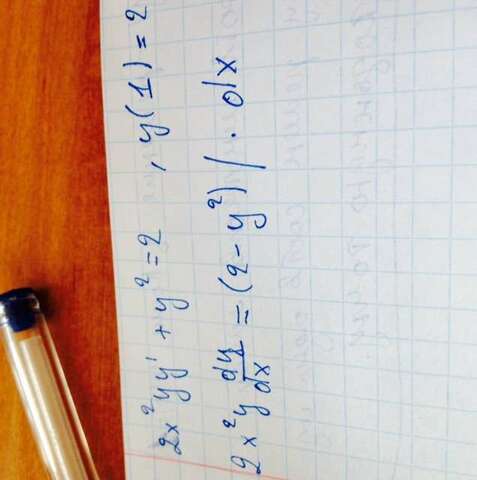 2x²yy' + y² = 2 , y(1) = 2
2x²y dy/dx = (2 - y²) | · dx